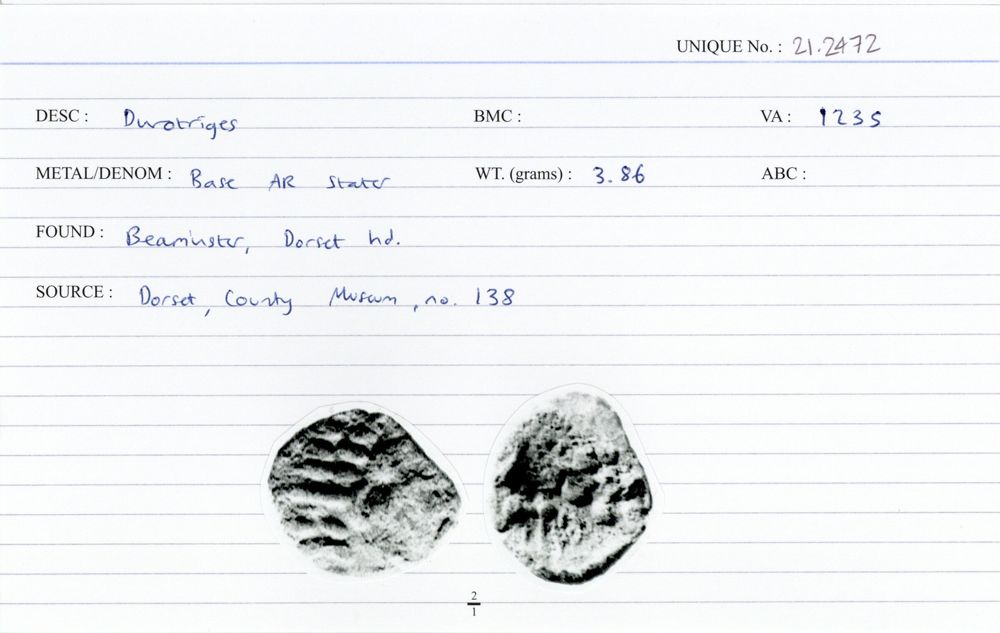 UNIQUE No. : 21.2472
DESC : Durotriges BMC : VA : 1235
METAL/DENOM : Base AR Stater WT. (grams) : 3.86 ABC :
FOUND : Beaminster, Dorset hd.
SOURCE : Dorset, County Museum, no. 138
2
1